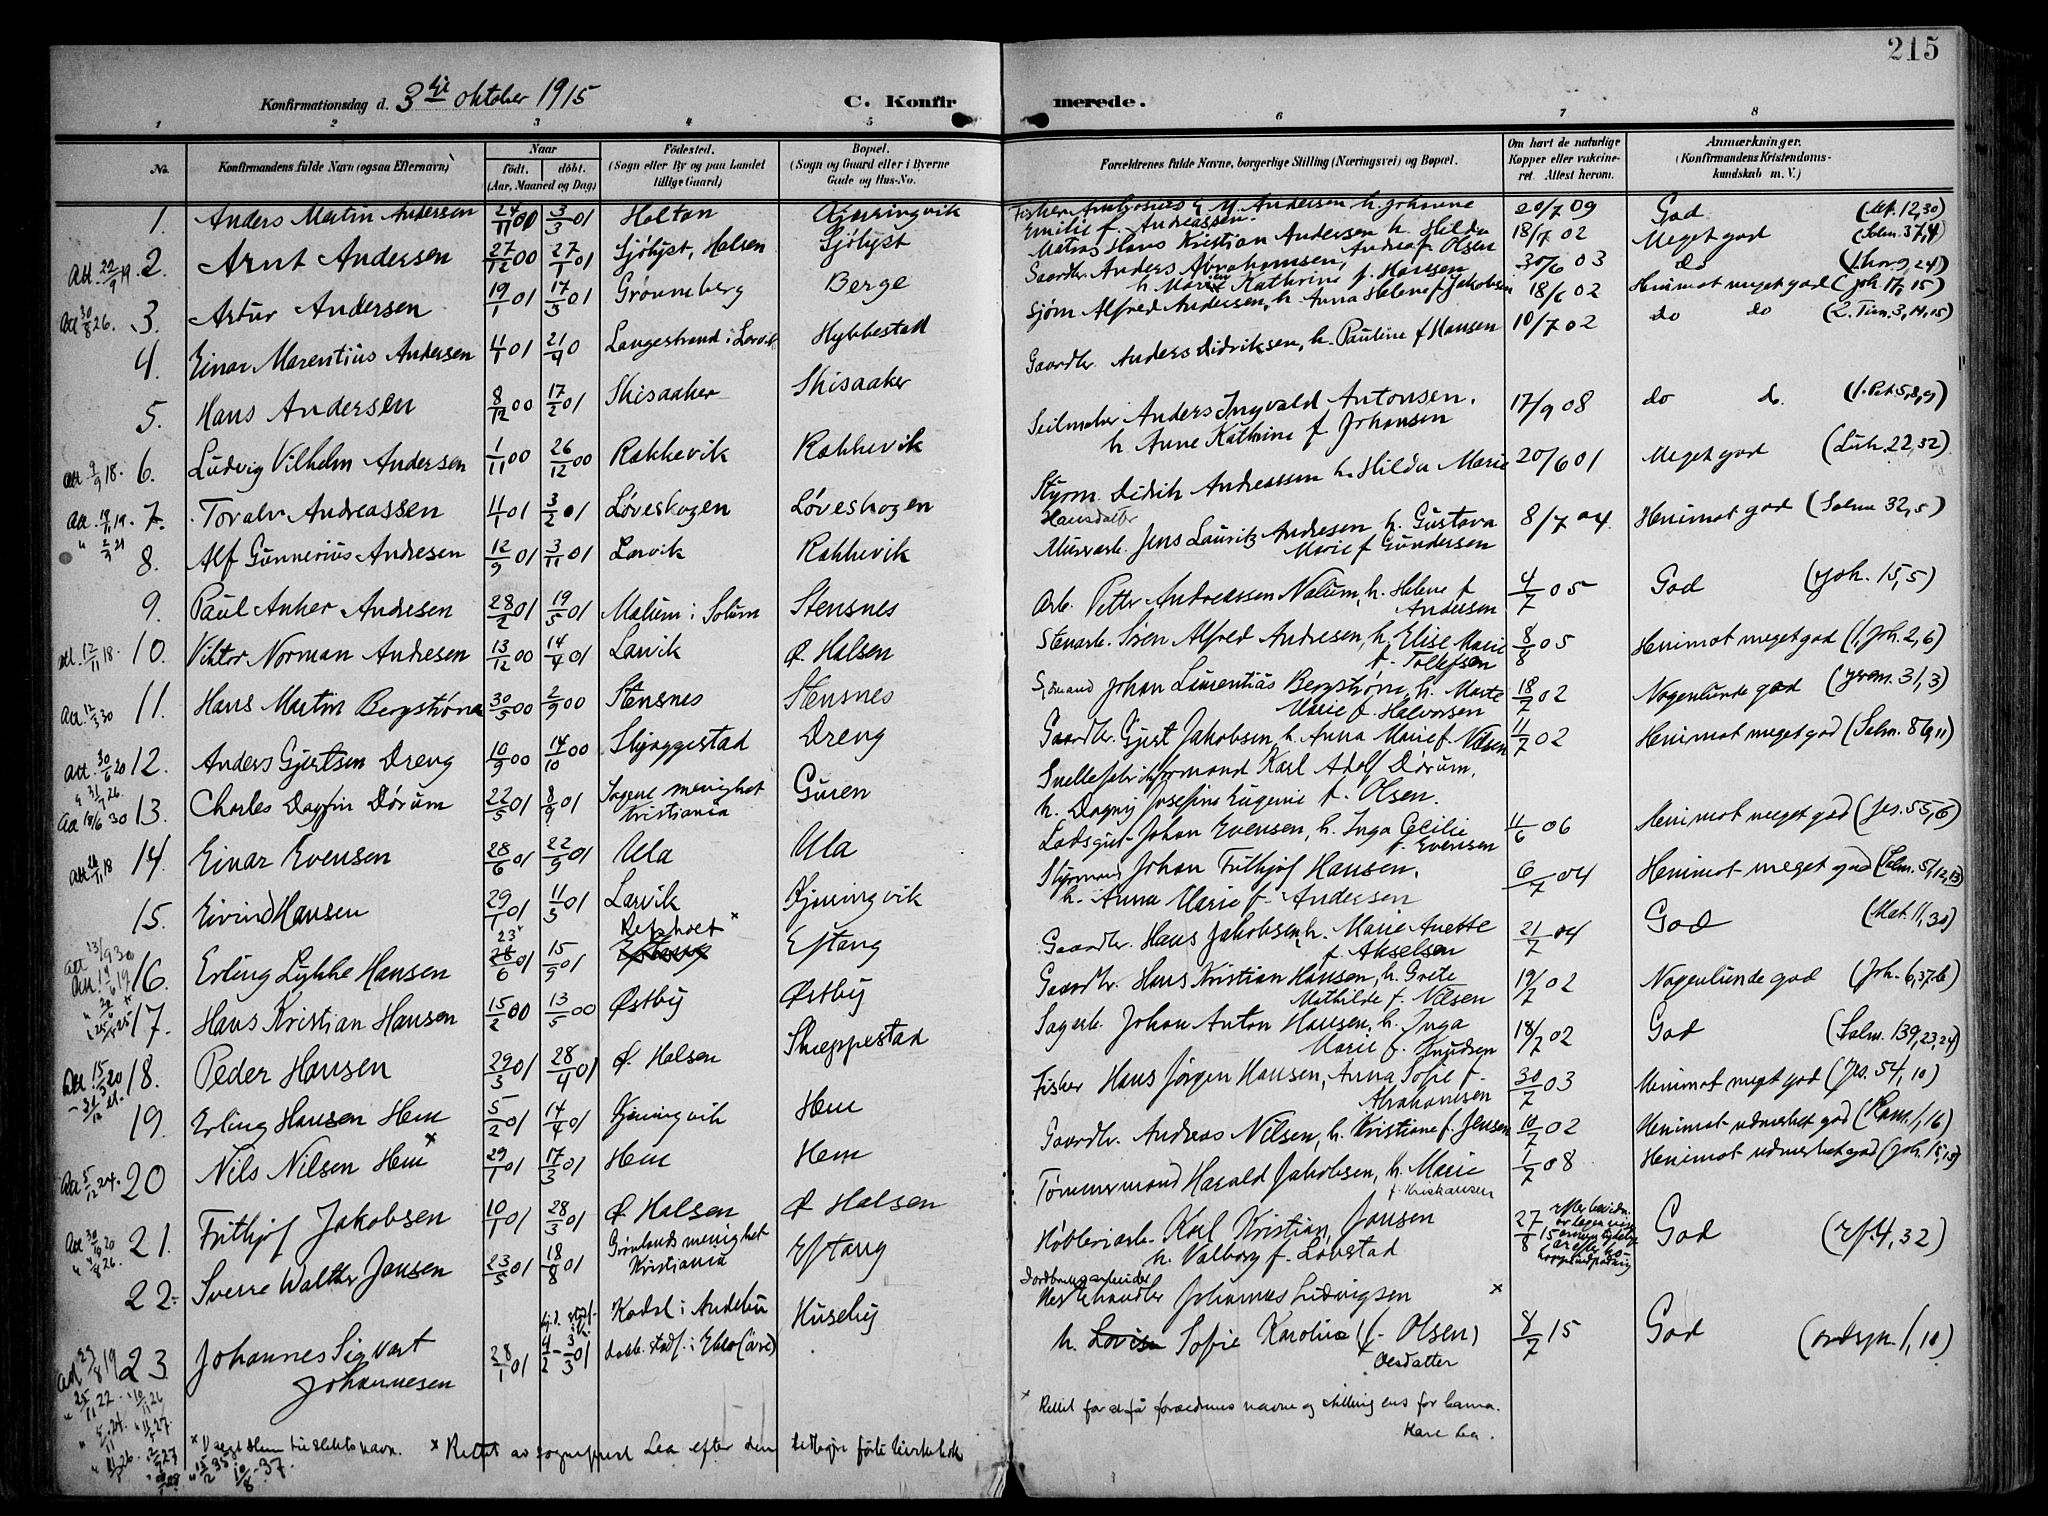 215
Konfirmationsdag d. 3die oktober 1915 C. Konfirmerede.
1 2 3 4 5 6 7 8
No. Konfirmandens fulde Navn (ogsaa Efternavn) Naar født. døbt. (Aar, Maaned og Dag) Fødested. (Sogn eller By og paa Landet tillige Gaard) Bopæl. (Sogn og Gaard eller i Byerne Gade og Hus-No. Forældrenes fulde Navne, borgerlige Stilling (Næringsvei) og Bopæl. Om havt de naturlige Kopper eller vakcineret. Attest herom. Anmærkninger. (Konfirmandens Kristendomskundskab m. V.)
1. Anders Martin Andersen 24/11 00 3/3 01 Holtan Kjerringvik Fisker M. Andersen h. Johanne Emilie f. Andreassen. 20/7 09 God
2. Arnt Andersen 27/12 00 27/1 01 Sjølyst, Halsen Sjølyst Matros Hans Kristian Andersen h. Hilda Andrea f. Olsen 18/7 02 Meget god (Salm. 37,4)
3. Artur Andersen 19/1 01 17/3 01 Grønneberg Berge Gaardbr. Anders Abrahamsen, h. Maren Kathrine f. Hansen 30/6 03 do
4. Einar Marentius Andersen 11/1 01 21/4 0 Langestrand i Larvik Hybbestad Sjøm Alfred Andersen, h. Anna Helene f. Jakobsen 18/6 02 Henimot meget god (Joh. 17, 15)
5. Hans Andersen 8/12 00 17/2 01 Skisaaker Skisaaker Gaardbr. Anders Didriksen, h. Pauline f Hansen 10/7 02 do do (2. Tim. 3, 14, 15)
6. Ludvig Vilhelm Andersen 1/11 00 26/12 00 Rakkevik Rakkevik Seilmaker Anders Ingvald Antonsen, h Anne Kathrine f Johansen 17/9 08 do do (1. Pet. 5, 8, 9)
7. Toralv Andreassen 11/1 01 3/2 01 Løveskogen Løveskogen Styrm. Didrik Andreassen h. Hilda Marie Hansdatter 20/6 01 Meget god (Luk. 22, 32)
8. Alf Gunnerius Andresen 12/9 01 3/11 01 Larvik Rakkevik Murerarb. Jens Lauritz Andresen, h. Gustava Marie f Gundersen 8/7 04. Henimot god (Salm 32, 5)
9. Paul Anker Andresen 28/2 01 19/5 01 Melum i Solum Stensnes Arb. Petter Andreassen Nalum, h. Helene f Andersen 4/7 05 God (Joh. 15, 5)
10. Viktor Norman Andresen 13/12 00 14/4 01 Larvik Ø. Halsen Stenarb. Søren Alfred Andresen, h. Elise Marie f. Tollefsen 8/8 05 Henimot meget god (1. Joh. 2, 6)
11. Hans Martin Bergstrøm 30/5 00 2/9 00 Stensnes Stensnes Sjømand Johan Laurentius Bergstrøm, h. Marte Marie f. Halvorsen 18/7 02 Nogenlunde god (Jerem. 31, 3)
12. Anders Gjertsen Dreng 10/9 00 14/10 00 Skjæggestad Dreng Gaardbr. Gjert Jakobsen, h. Anna Marie f. Nilsen 11/7 02 Henimot meget god (Salm. 86, 11)
13. Charles Dagfin Dørum 22/5 01 8/9 01 Sagene menighet Kristiania Guren Karl Adolf Dørum, h. Dagny Josefine Eugenie f. Olsen.
14. Einar Evensen 28/6 01 22/9 01 Ula Ula Lodsgut Johan Evensen, h. Inga Cecilie f. Evensen 11/6 06 Henimot meget god (Jes. 55, 6)
15. Eivind Hansen 29/1 01 11/3 01 Larvik Kjerringvik Styrmand Johan Frithjof Hansen, h. Anna Marie f. Andersen 6/7 04 Henimot meget god
16. Erling Lykke Hansen 23x 28/6 01 15/9 01 Eftang Gaardbr. Hans Jakobsen, h. Marie Anette f. Akselsen 21/7 04 God (Mat. 11, 30)
17. Hans Kristian Hansen 15/2 00 13/5 00 Østby Østby Gaardbr. Hans Kristian Hansen, h. Grete Mathilde f. Nilsen 19/7 02 Nogenlunde god
18. Peder Hansen 29/3 01 28/4 01 Ø. Halsen Skæppestad Sagarb. Johan Anton Hansen, h. Inga Marie f. Knudsen 18/7 02 God (Salm. 139, 23, 24)
19. Erling Hansen Hem 5/2 01 14/4 01 Kjerringvik Hem Fisker Hans Jørgen Hansen, Anna Sofie f. Abrahamsen 30/7 03 Henimot meget god (Jes. 54, 10)
20 Nils Nilsen Hem x 29/1 01 17/3 01 Hem Hem Gaardbr. Andreas Nilsen, h. Kristiane f. Jensen 10/7 02 Henimot udmerket god (Rom. 1, 16)
21. Frithjof Jakobsen 10/1 01 28/3 01 Ø Halsen Ø Halsen Tømmermand Harald Jakobsen, h. Marie f. Kristiansen 1/7 08 Henimot udmerket god
22. Sverre Walther Jansen 23/5 01 18/8 01 Grønlands menighet Kristiania Eftang Høvleriarb. Karl Kristian Jansen h. Valborg f. Løbstad 27/8 15 God (Ef. 4, 32)
23. Johannes Sigvart Johannesen 28/1 01 4/2 - 3/3 01 Kodal i Andebu Huseby Jordbrugsarbeider Hestehandler Johannes Ludvigsen x h. Lovise Sofie Karoline (f. Olsen) Olesdatter 8/7 15 God (Ordspr. 1, 10)
x Rettet for at få forældrenes navne og stilling ens for barna. Kåre Lea.
x Valgt Hem til slektsnavn. x Rettet av sogneprest Lea efter den tidligere førte kirkebok